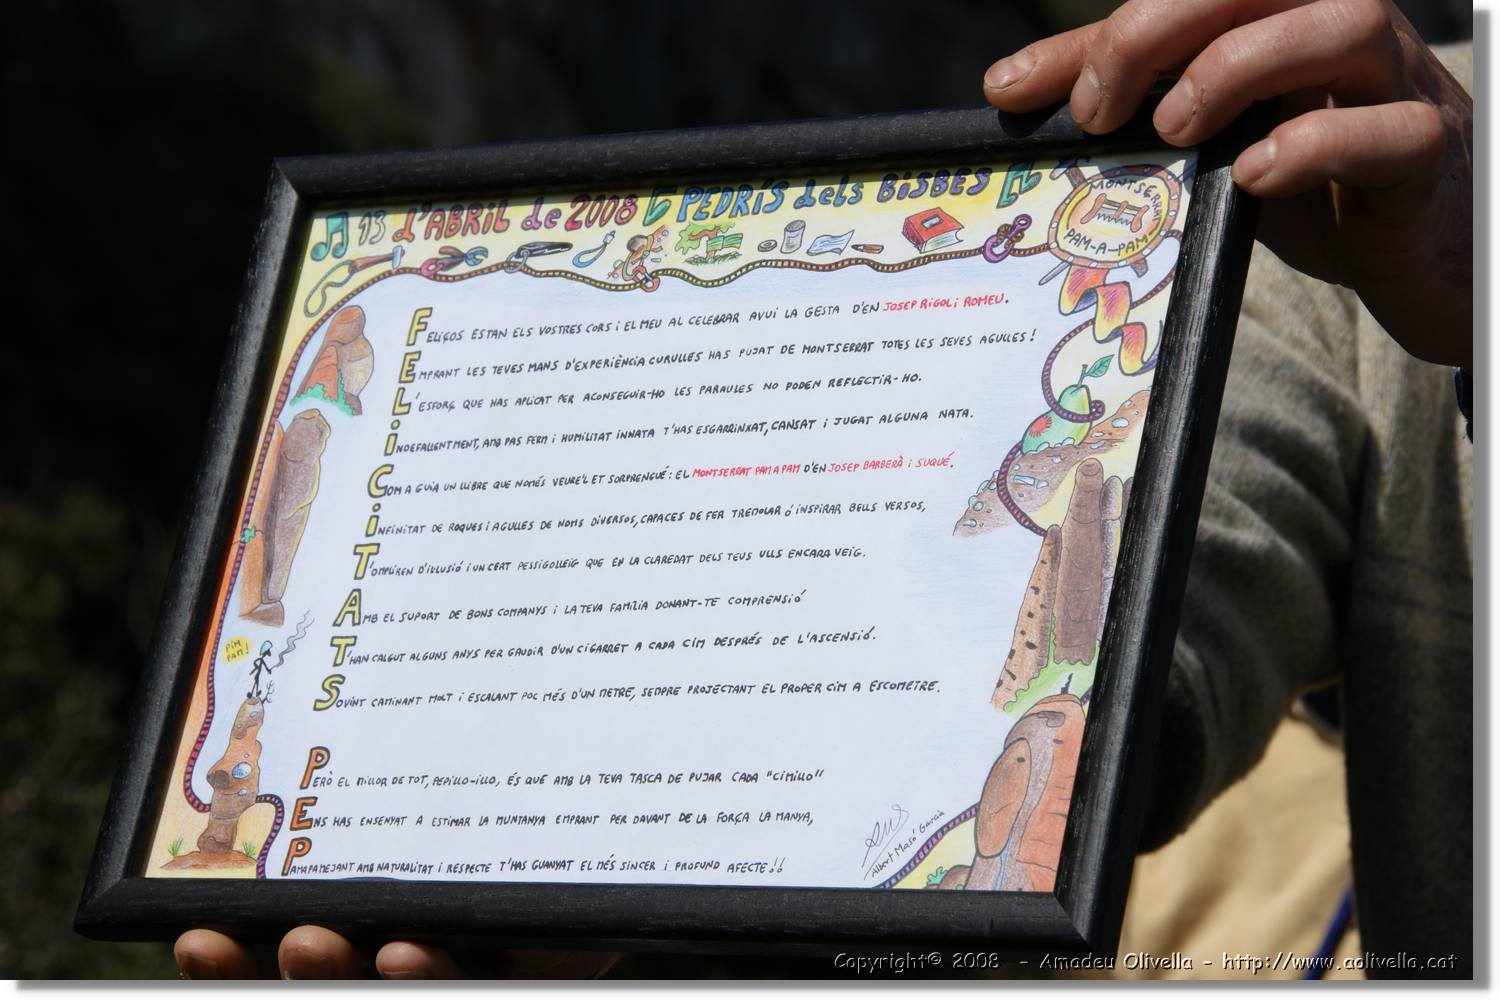 13 d'ABRIL de 2008 PEDRÍS dels BISBES
MONTSERRAT
PAM-A-PAM
FELIÇOS ESTAN ELS VOSTRES CORS i EL MEU AL CELEBRAR AVUI LA GESTA D'EN JOSEP RIGOL i ROMEU.
EMPRANT LES TEVES MANS D'EXPERIÈNCIA CURULLES HAS PUJAT DE MONTSERRAT TOTES LES SEVES AGULLES!
L'ESFORÇ QUE HAS APLICAT PER ACONSEGUIR-HO LES PARAULES NO PODEN REFLECTIR-HO.
INDEFALLENTMENT, AMB PAS FERM i HUMILITAT INNATA T'HAS ESGARRINXAT, CANSAT i JUGAT ALGUNA NATA.
COM A GUIA UN LLIBRE QUE NOMÉS VEURE'L ET SORPRENGUÉ: EL MONTSERRAT PAM A PAM D'EN JOSEP BARBERÀ i SUQUÉ.
INFINITAT DE ROQUES i AGULLES DE NOMS DIVERSOS, CAPACES DE FER TREMOLAR Ó INSPIRAR BELLS VERSOS,
T'OMPLIREN D'IL·LUSIÓ i UN CERT PESSIGOLLEIG QUE EN LA CLAREDAT DELS TEUS ULLS ENCARA VEIG.
AMB EL SUPORT DE BONS COMPANYS i LA TEVA FAMÍLIA DONANT-TE COMPRENSIÓ
T'HAN CALGUT ALGUNS ANYS PER GAUDIR D'UN CIGARRET A CADA CIM DESPRÉS DE L'ASCENSIÓ.
SOVINT CAMINANT MOLT i ESCALANT POC MÉS D'UN METRE, SEMPRE PROJECTANT EL PROPER CIM A ESCOMETRE.
PIM
PAM!
PERÒ EL MILLOR DE TOT, PEPILLO-ILLO, ÉS QUE AMB LA TEVA TASCA DE PUJAR CADA "CIMILLO"
ENS HAS ENSENYAT A ESTIMAR LA MUNTANYA EMPRANT PER DAVANT DE LA FORÇA LA MANYA,
PAMAPAMEJANT AMB NATURALITAT i RESPECTE T'HAS GUANYAT EL MÉS SINCER i PROFUND AFECTE!!
Albert Masó Garcia
Copyright© 2008 - Amadeu Olivella - http://www.aolivella.cat